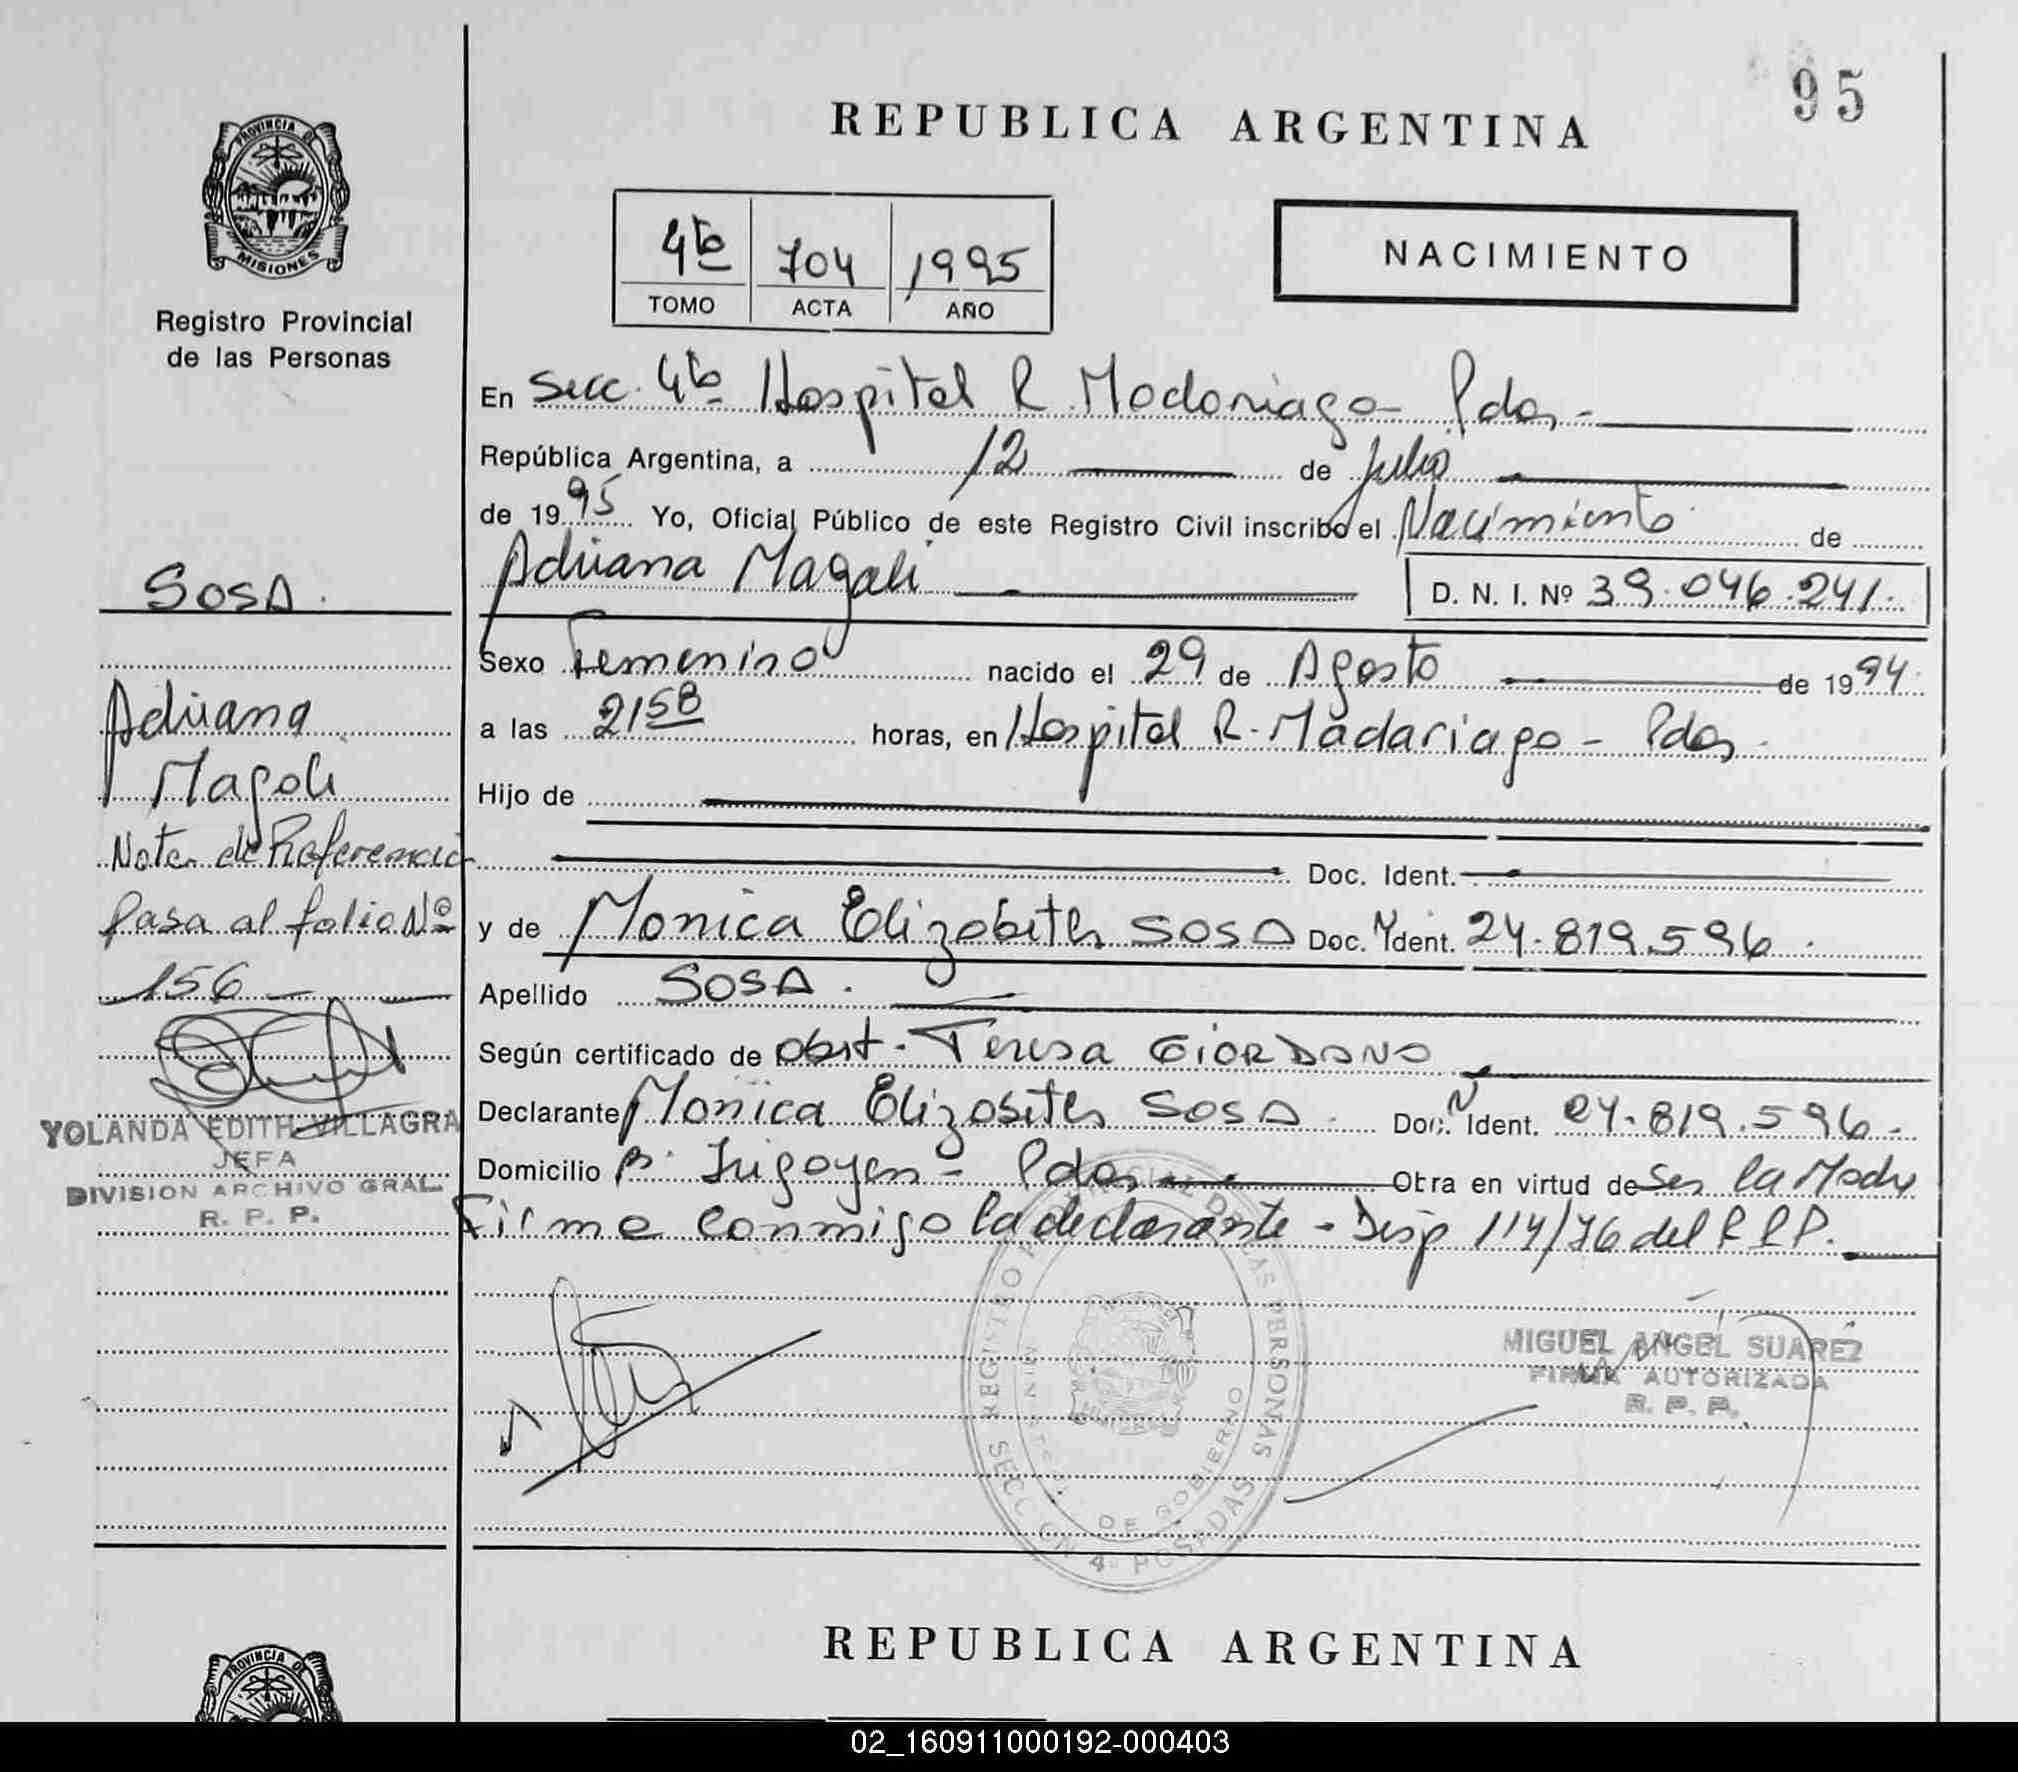 95
REPUBLICA ARGENTINA
PROVINCIA DE
MISIONES
Registro Provincial
de las Personas
4ta 704 1995
TOMO ACTA AÑO
NACIMIENTO
En Secc. 4ta Hospital R. Madariaga - Pdas -
República Argentina, a 12 de Julio
de 1995 Yo, Oficial Público de este Registro Civil inscribo el Nacimiento de
Adriana Magali D. N. I. Nº 39.046.241.
Sexo Femenino nacido el 29 de Agosto de 1994
a las 2158 horas, en Hospital R. Madariaga - Pdas.
Hijo de
Doc. Ident.
y de Monica Elizabeth SOSA Doc. N Ident. 24.819.596.
Apellido SOSA.
Según certificado de obst. Teresa GIORDANO
Declarante Monica Elizabeth SOSA. Doc. N Ident. 24.819.596.
Domicilio B. Irigoyen - Pdas Otra en virtud de Ser la Madre
Firma conmigo la declarante - Disp 114/76 del R.P.P.
SOSA.
Adriana
Magali
Nota de Referencia
pasa al folio Nº
156
YOLANDA EDITH VILLAGRA
JEFA
DIVISION ARCHIVO GRAL.
R. P. P.
REGISTRO PROVINCIAL DE LAS PERSONAS
SECCION 4ª POSADAS
DE GOBIERNO
MIGUEL ANGEL SUAREZ
FIRMA AUTORIZADA
R. P. P.
REPUBLICA ARGENTINA
PROVINCIA DE
02_160911000192-000403